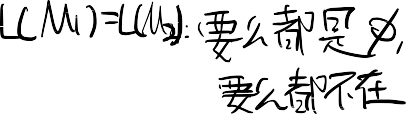 L(M₁)=L(M₂): 要么都是∅,
要么都不在